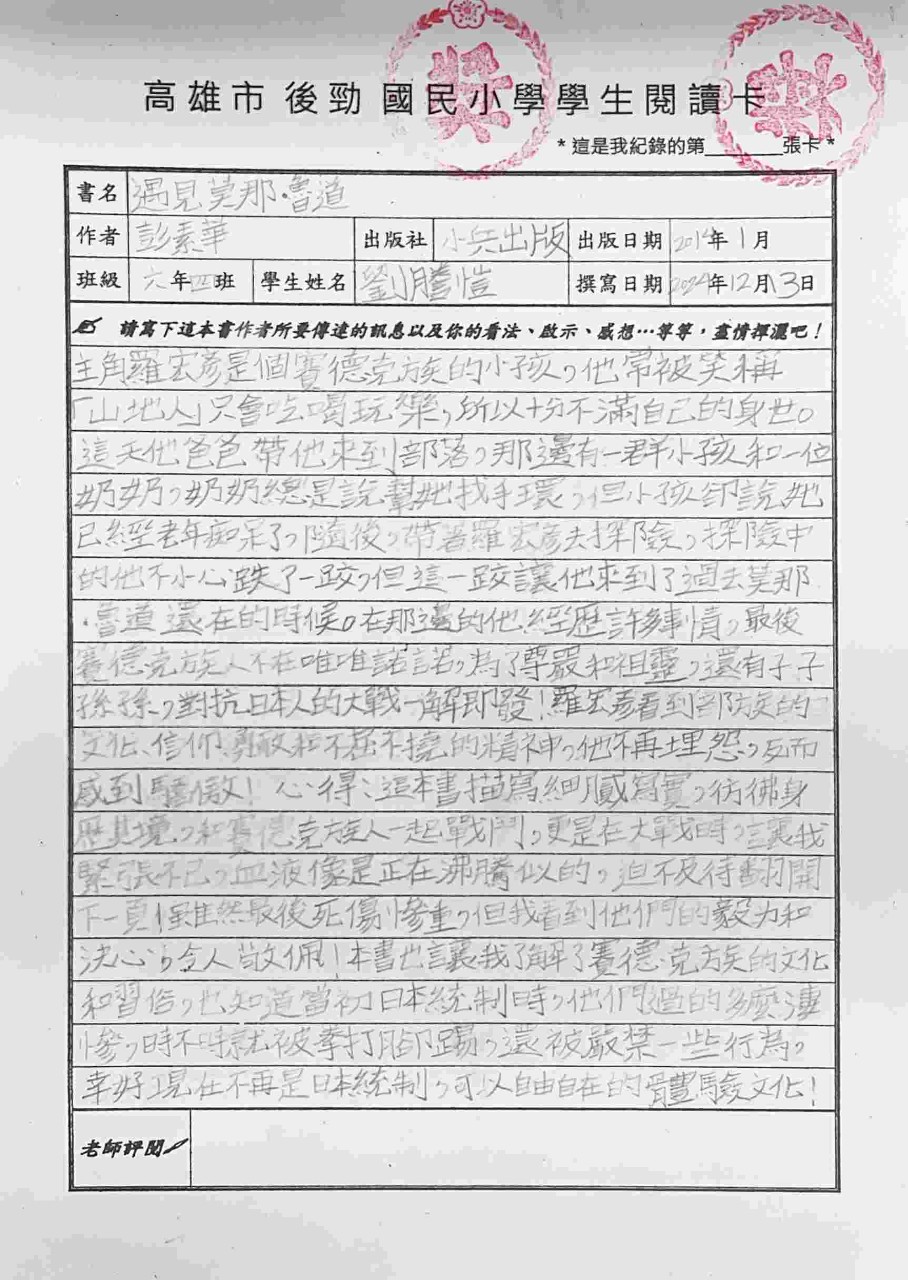 獎
獎
高雄市 後勁 國民小學學生閱讀卡
*這是我紀錄的第______張卡*
書名 遇見莫那·魯道
作者 彭素華 出版社 小兵出版 出版日期 2014年1月
班級 六年四班 學生姓名 劉騰愷 撰寫日期 2024年12月13日
請寫下這本書作者所要傳達的訊息以及你的看法、啟示、感想…等等,盡情揮灑吧!
主角羅宏彥是個賽德克族的小孩,他常被笑稱
「山地人」只會吃喝玩樂,所以十分不滿自己的身世。
這天他爸爸帶他來到部落,那邊有一群小孩和一位
奶奶,奶奶總是說幫她找手環,但小孩卻說她
已經老年痴呆了,隨後,帶著羅宏彥去探險,探險中
的他不小心跌了一跤,但這一跤讓他來到了過去莫那
·魯道還在的時候。在那邊的他,經歷許多事情,最後
賽德克族人不在唯唯諾諾,為了尊嚴和祖靈,還有子子
孫孫,對抗日本人的大戰一解即發!羅宏彥看到部族的
文化、信仰、勇敢和不屈不撓的精神,他不再埋怨,反而
感到驕傲! 心得:這本書描寫細膩寫實,彷彿身
歷其境,和賽德克族人一起戰鬥,更是在大戰時,讓我
緊張不已,血液像是正在沸騰似的,迫不及待翻開
下一頁!雖然最後死傷慘重,但我看到他們的毅力和
決心,令人敬佩!本書也讓我了解了賽德克族的文化
和習俗,也知道當初日本統制時,他們過的多麼淒
慘,時不時就被拳打腳踢,還被嚴禁一些行為,
幸好現在不再是日本統制,可以自由自在的體驗文化!
老師評閱